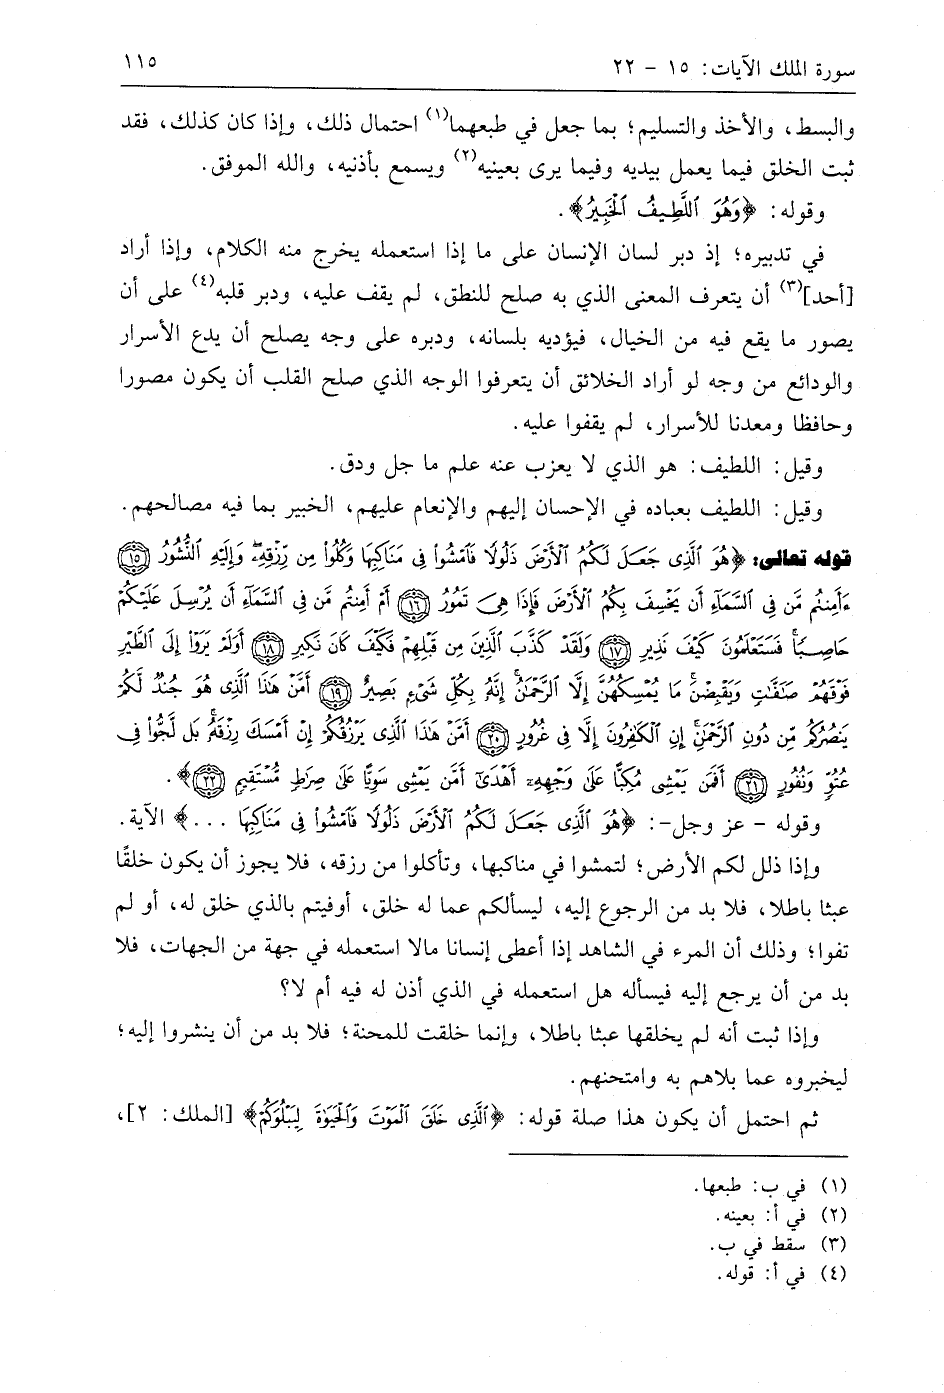 سورة الملك الآيات: ١٥ - ٢٢
١١٥
والبسط، والأخذ والتسليم؛ بما جعل في طبعهما(١) احتمال ذلك، وإذا كان كذلك، فقد
ثبت الخلق فيما يعمل بيديه وفيما يرى بعينيه(٢) ويسمع بأذنيه، والله الموفق.
وقوله: ﴿وَهُوَ ٱللَّطِيفُ ٱلْخَبِيرُ﴾.
في تدبيره؛ إذ دبر لسان الإنسان على ما إذا استعمله يخرج منه الكلام، وإذا أراد
[أحد](٣) أن يتعرف المعنى الذي به صلح للنطق، لم يقف عليه، ودبر قلبه(٤) على أن
يصور ما يقع فيه من الخيال، فيؤديه بلسانه، ودبره على وجه يصلح أن يدع الأسرار
والودائع من وجه لو أراد الخلائق أن يتعرفوا الوجه الذي صلح القلب أن يكون مصورا
وحافظا ومعدنا للأسرار، لم يقفوا عليه.
وقيل: اللطيف: هو الذي لا يعزب عنه علم ما جل ودق.
وقيل: اللطيف بعباده في الإحسان إليهم والإنعام عليهم، الخبير بما فيه مصالحهم.
قوله تعالى: ﴿هُوَ ٱلَّذِى جَعَلَ لَكُمُ ٱلْأَرْضَ ذَلُولًا فَٱمْشُوا۟ فِى مَنَاكِبِهَا وَكُلُوا۟ مِن رِّزْقِهِۦ وَإِلَيْهِ ٱلنُّشُورُ ١٥
ءَأَمِنتُم مَّن فِى ٱلسَّمَآءِ أَن يَخْسِفَ بِكُمُ ٱلْأَرْضَ فَإِذَا هِىَ تَمُورُ ١٦ أَمْ أَمِنتُم مَّن فِى ٱلسَّمَآءِ أَن يُرْسِلَ عَلَيْكُمْ
حَاصِبًا فَسَتَعْلَمُونَ كَيْفَ نَذِيرِ ١٧ وَلَقَدْ كَذَّبَ ٱلَّذِينَ مِن قَبْلِهِمْ فَكَيْفَ كَانَ نَكِيرِ ١٨ أَوَلَمْ يَرَوْا۟ إِلَى ٱلطَّيْرِ
فَوْقَهُمْ صَٰٓفَّٰتٍ وَيَقْبِضْنَ مَا يُمْسِكُهُنَّ إِلَّا ٱلرَّحْمَٰنُ إِنَّهُۥ بِكُلِّ شَىْءٍۭ بَصِيرٌ ١٩ أَمَّنْ هَٰذَا ٱلَّذِى هُوَ جُندٌ لَّكُمْ
يَنصُرُكُم مِّن دُونِ ٱلرَّحْمَٰنِ إِنِ ٱلْكَٰفِرُونَ إِلَّا فِى غُرُورٍ ٢٠ أَمَّنْ هَٰذَا ٱلَّذِى يَرْزُقُكُمْ إِنْ أَمْسَكَ رِزْقَهُۥ بَل لَّجُّوا۟ فِى
عُتُوٍّ وَنُفُورٍ ٢١ أَفَمَن يَمْشِى مُكِبًّا عَلَىٰ وَجْهِهِۦٓ أَهْدَىٰٓ أَمَّن يَمْشِى سَوِيًّا عَلَىٰ صِرَٰطٍ مُّسْتَقِيمٍ ٢٢﴾.
وقوله - عز وجل-: ﴿هُوَ ٱلَّذِى جَعَلَ لَكُمُ ٱلْأَرْضَ ذَلُولًا فَٱمْشُوا۟ فِى مَنَاكِبِهَا ...﴾ الآية.
وإذا ذلل لكم الأرض؛ لتمشوا في مناكبها، وتأكلوا من رزقه، فلا يجوز أن يكون خلقًا
عبثا باطلا، فلا بد من الرجوع إليه، ليسألكم عما له خلق، أوفيتم بالذي خلق له، أو لم
تفوا؛ وذلك أن المرء في الشاهد إذا أعطى إنسانا مالا استعمله في جهة من الجهات، فلا
بد من أن يرجع إليه فيسأله هل استعمله في الذي أذن له فيه أم لا؟
وإذا ثبت أنه لم يخلقها عبثا باطلا، وإنما خلقت للمحنة؛ فلا بد من أن ينشروا إليه؛
ليخبروه عما بلاهم به وامتحنهم.
ثم احتمل أن يكون هذا صلة قوله: ﴿ٱلَّذِى خَلَقَ ٱلْمَوْتَ وَٱلْحَيَوٰةَ لِيَبْلُوَكُمْ﴾ [الملك: ٢]،
(١) في ب: طبعها.
(٢) في أ: بعينه.
(٣) سقط في ب.
(٤) في أ: قوله.